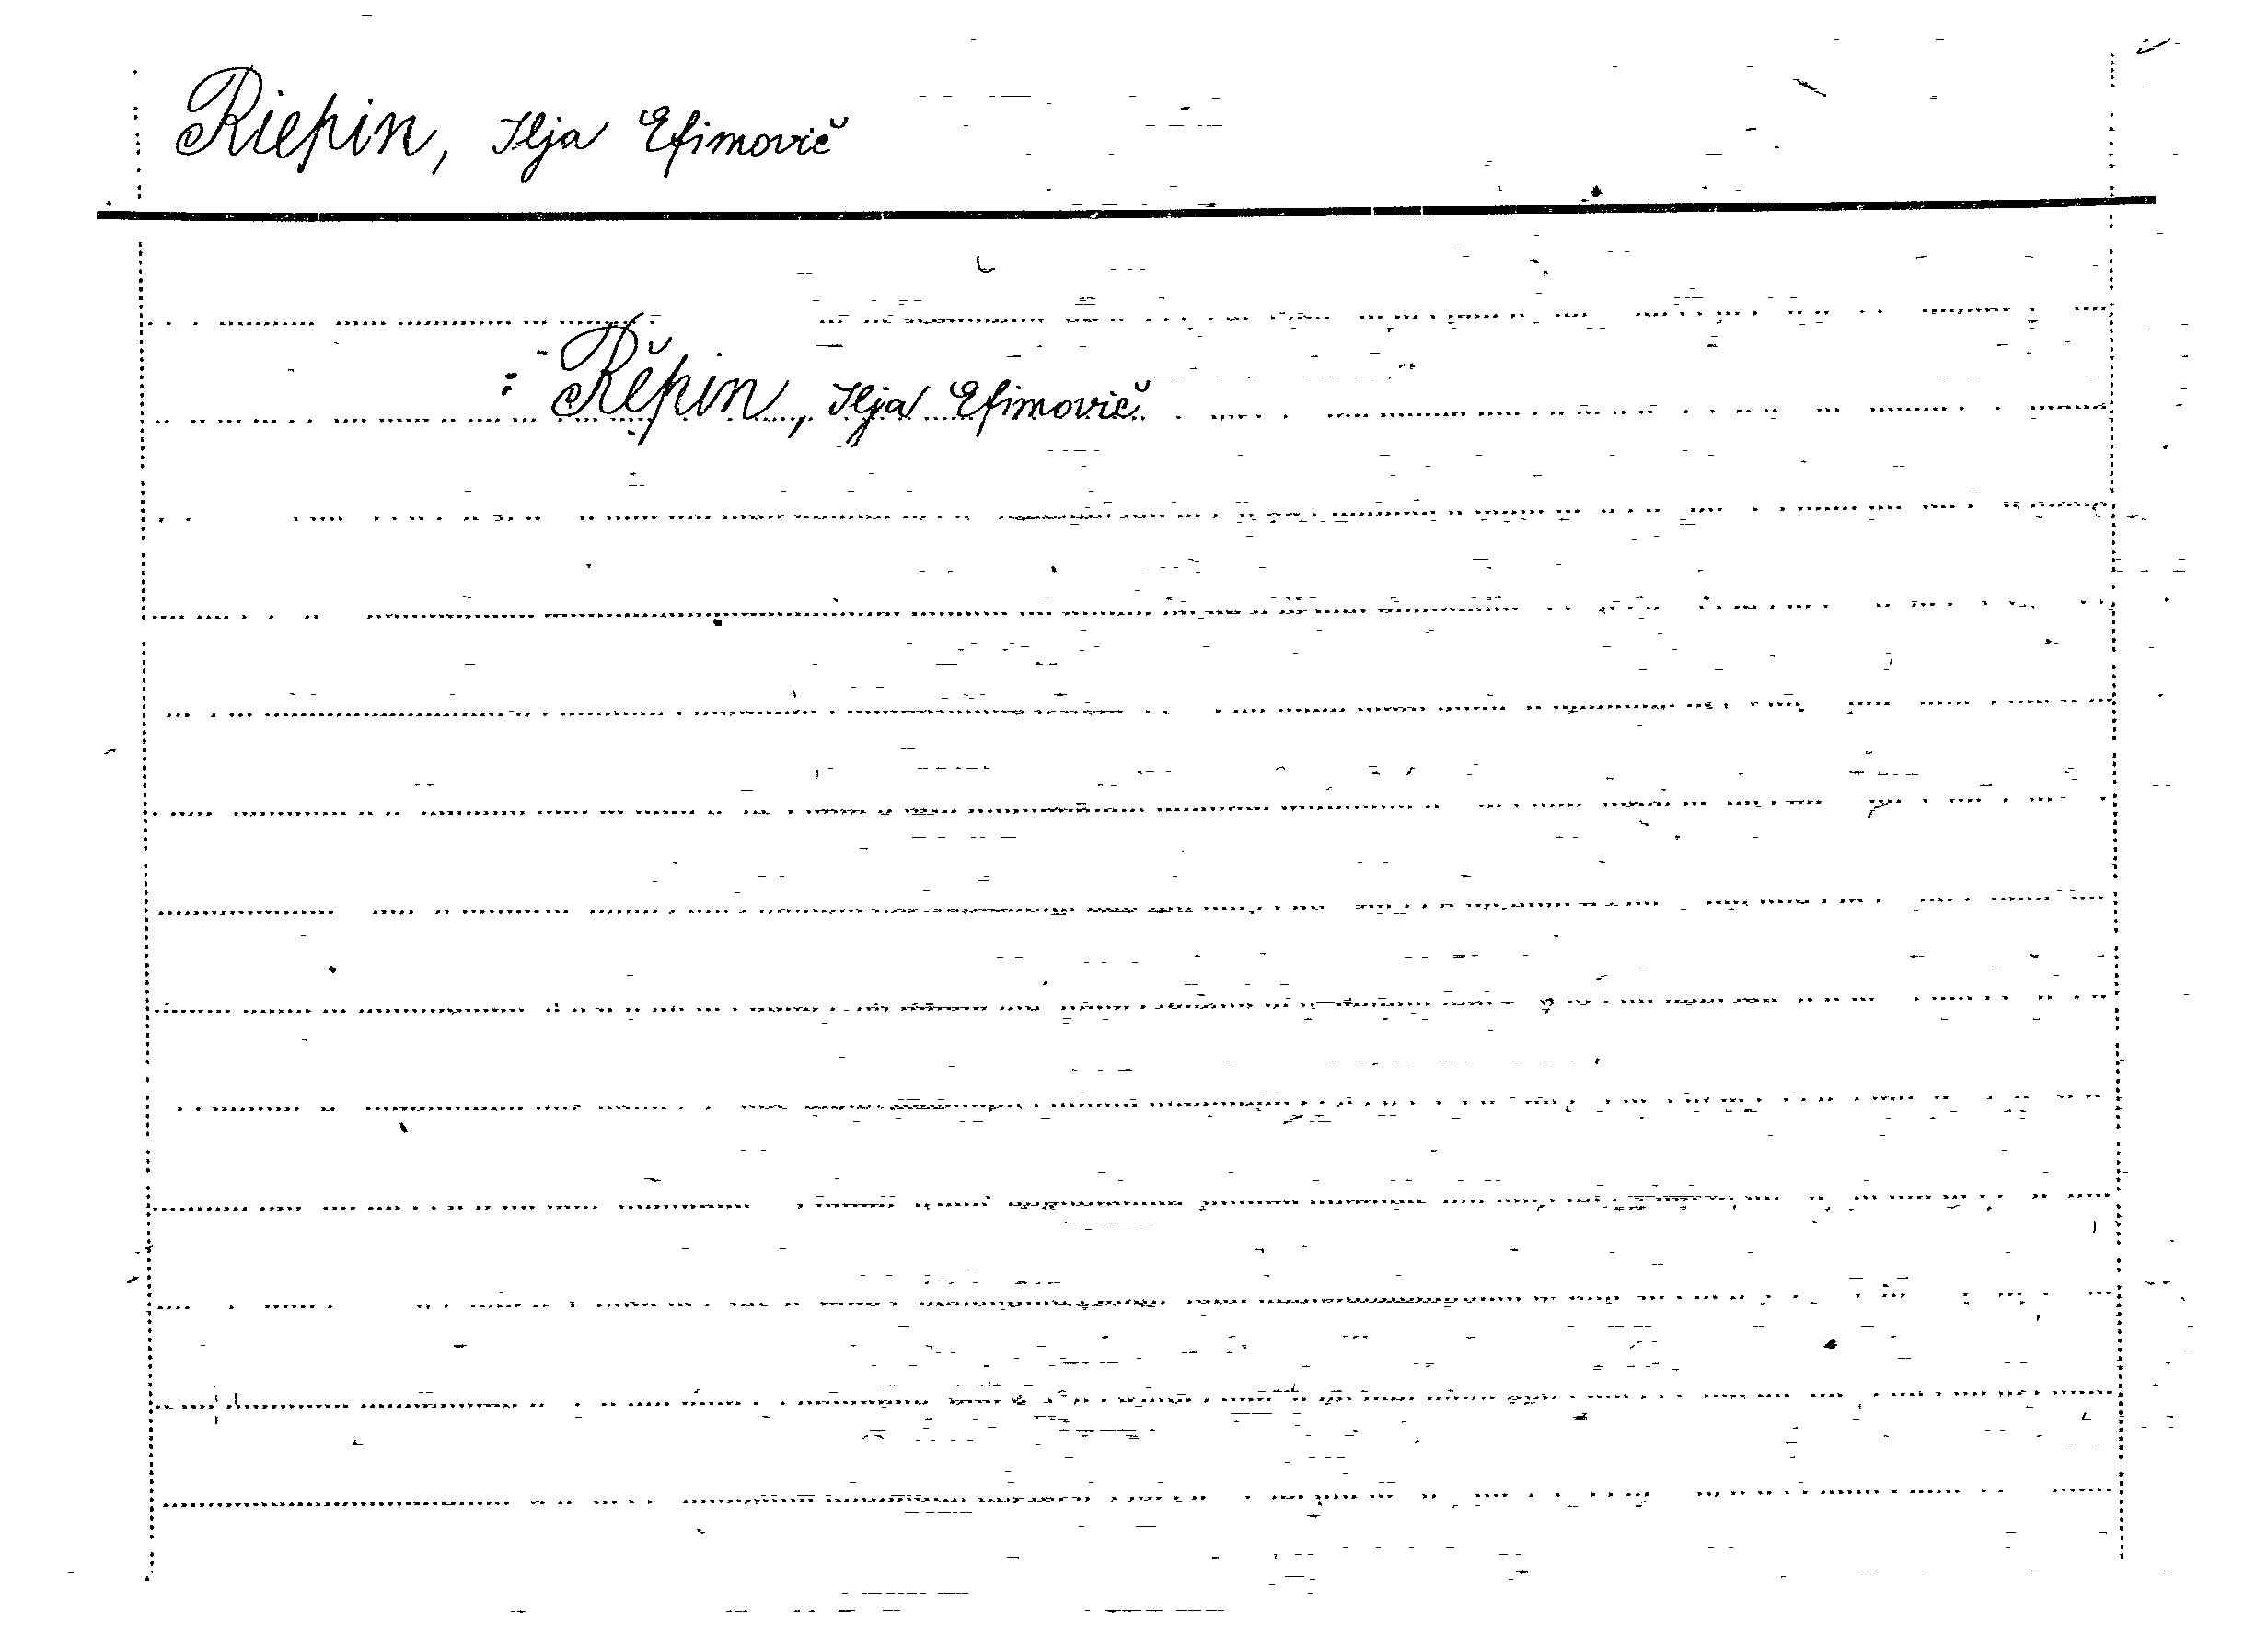 Riepin, Ilja Efimovič
: Rĕpin, Ilja Efimovič